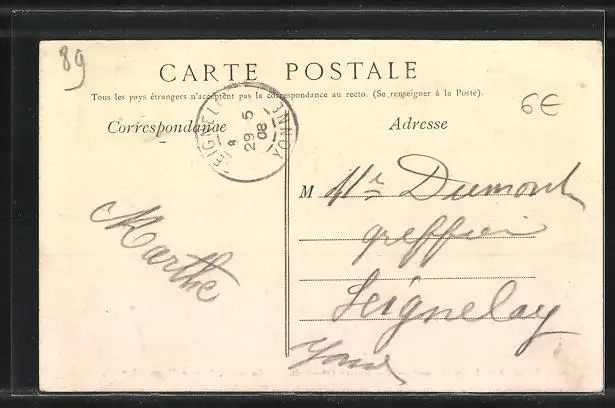 89
CARTE POSTALE
Tous les pays étrangers n'acceptent pas la correspondance au recto. (Se renseigner à la Poste).
6€
Correspondance
Adresse
SEIGNELAY
29 5
08
YONNE
M Mr Dumont
greffier
Seignelay
Yonne
Marthe